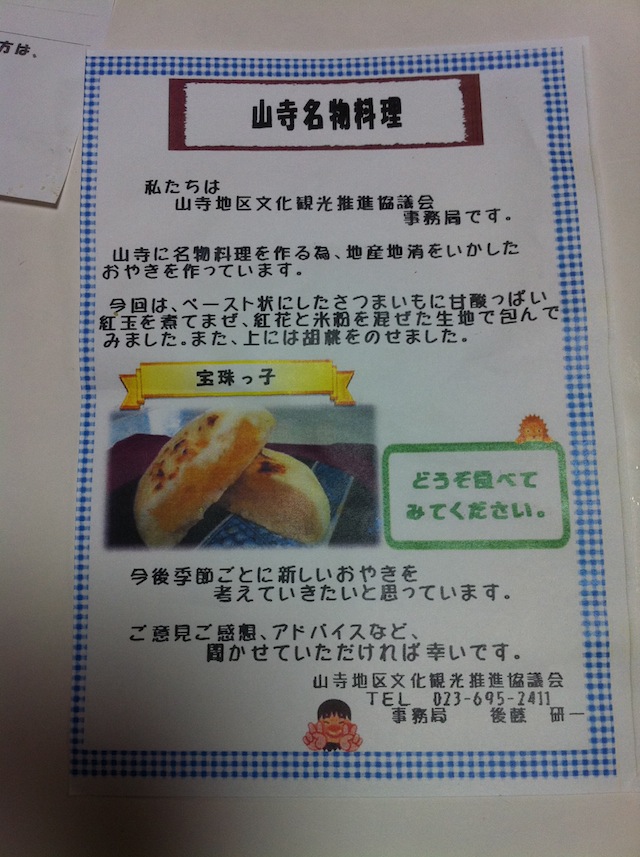 方は、
山寺名物料理
私たちは
山寺地区文化観光推進協議会
事務局です。
山寺に名物料理を作る為、地産地消をいかした
おやきを作っています。
今回は、ペースト状にしたさつまいもに甘酸っぱい
紅玉を煮てまぜ、紅花と米粉を混ぜた生地で包んで
みました。また、上には胡桃をのせました。
宝珠っ子
どうぞ食べて
みてください。
今後季節ごとに新しいおやきを
考えていきたいと思っています。
ご意見ご感想、アドバイスなど、
聞かせていただければ幸いです。
山寺地区文化観光推進協議会
TEL 023-695-2411
事務局 後藤 研一